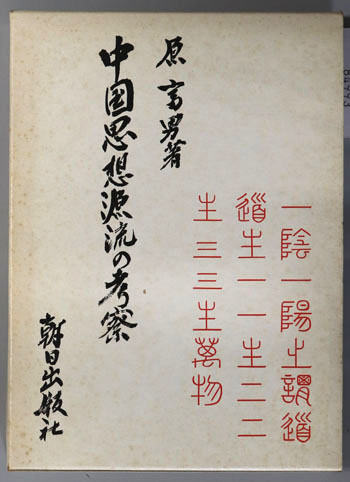 一陰一陽之謂道
道生一一生二二
生三三生萬物
原富男著
中国思想源流の考察
朝日出版社